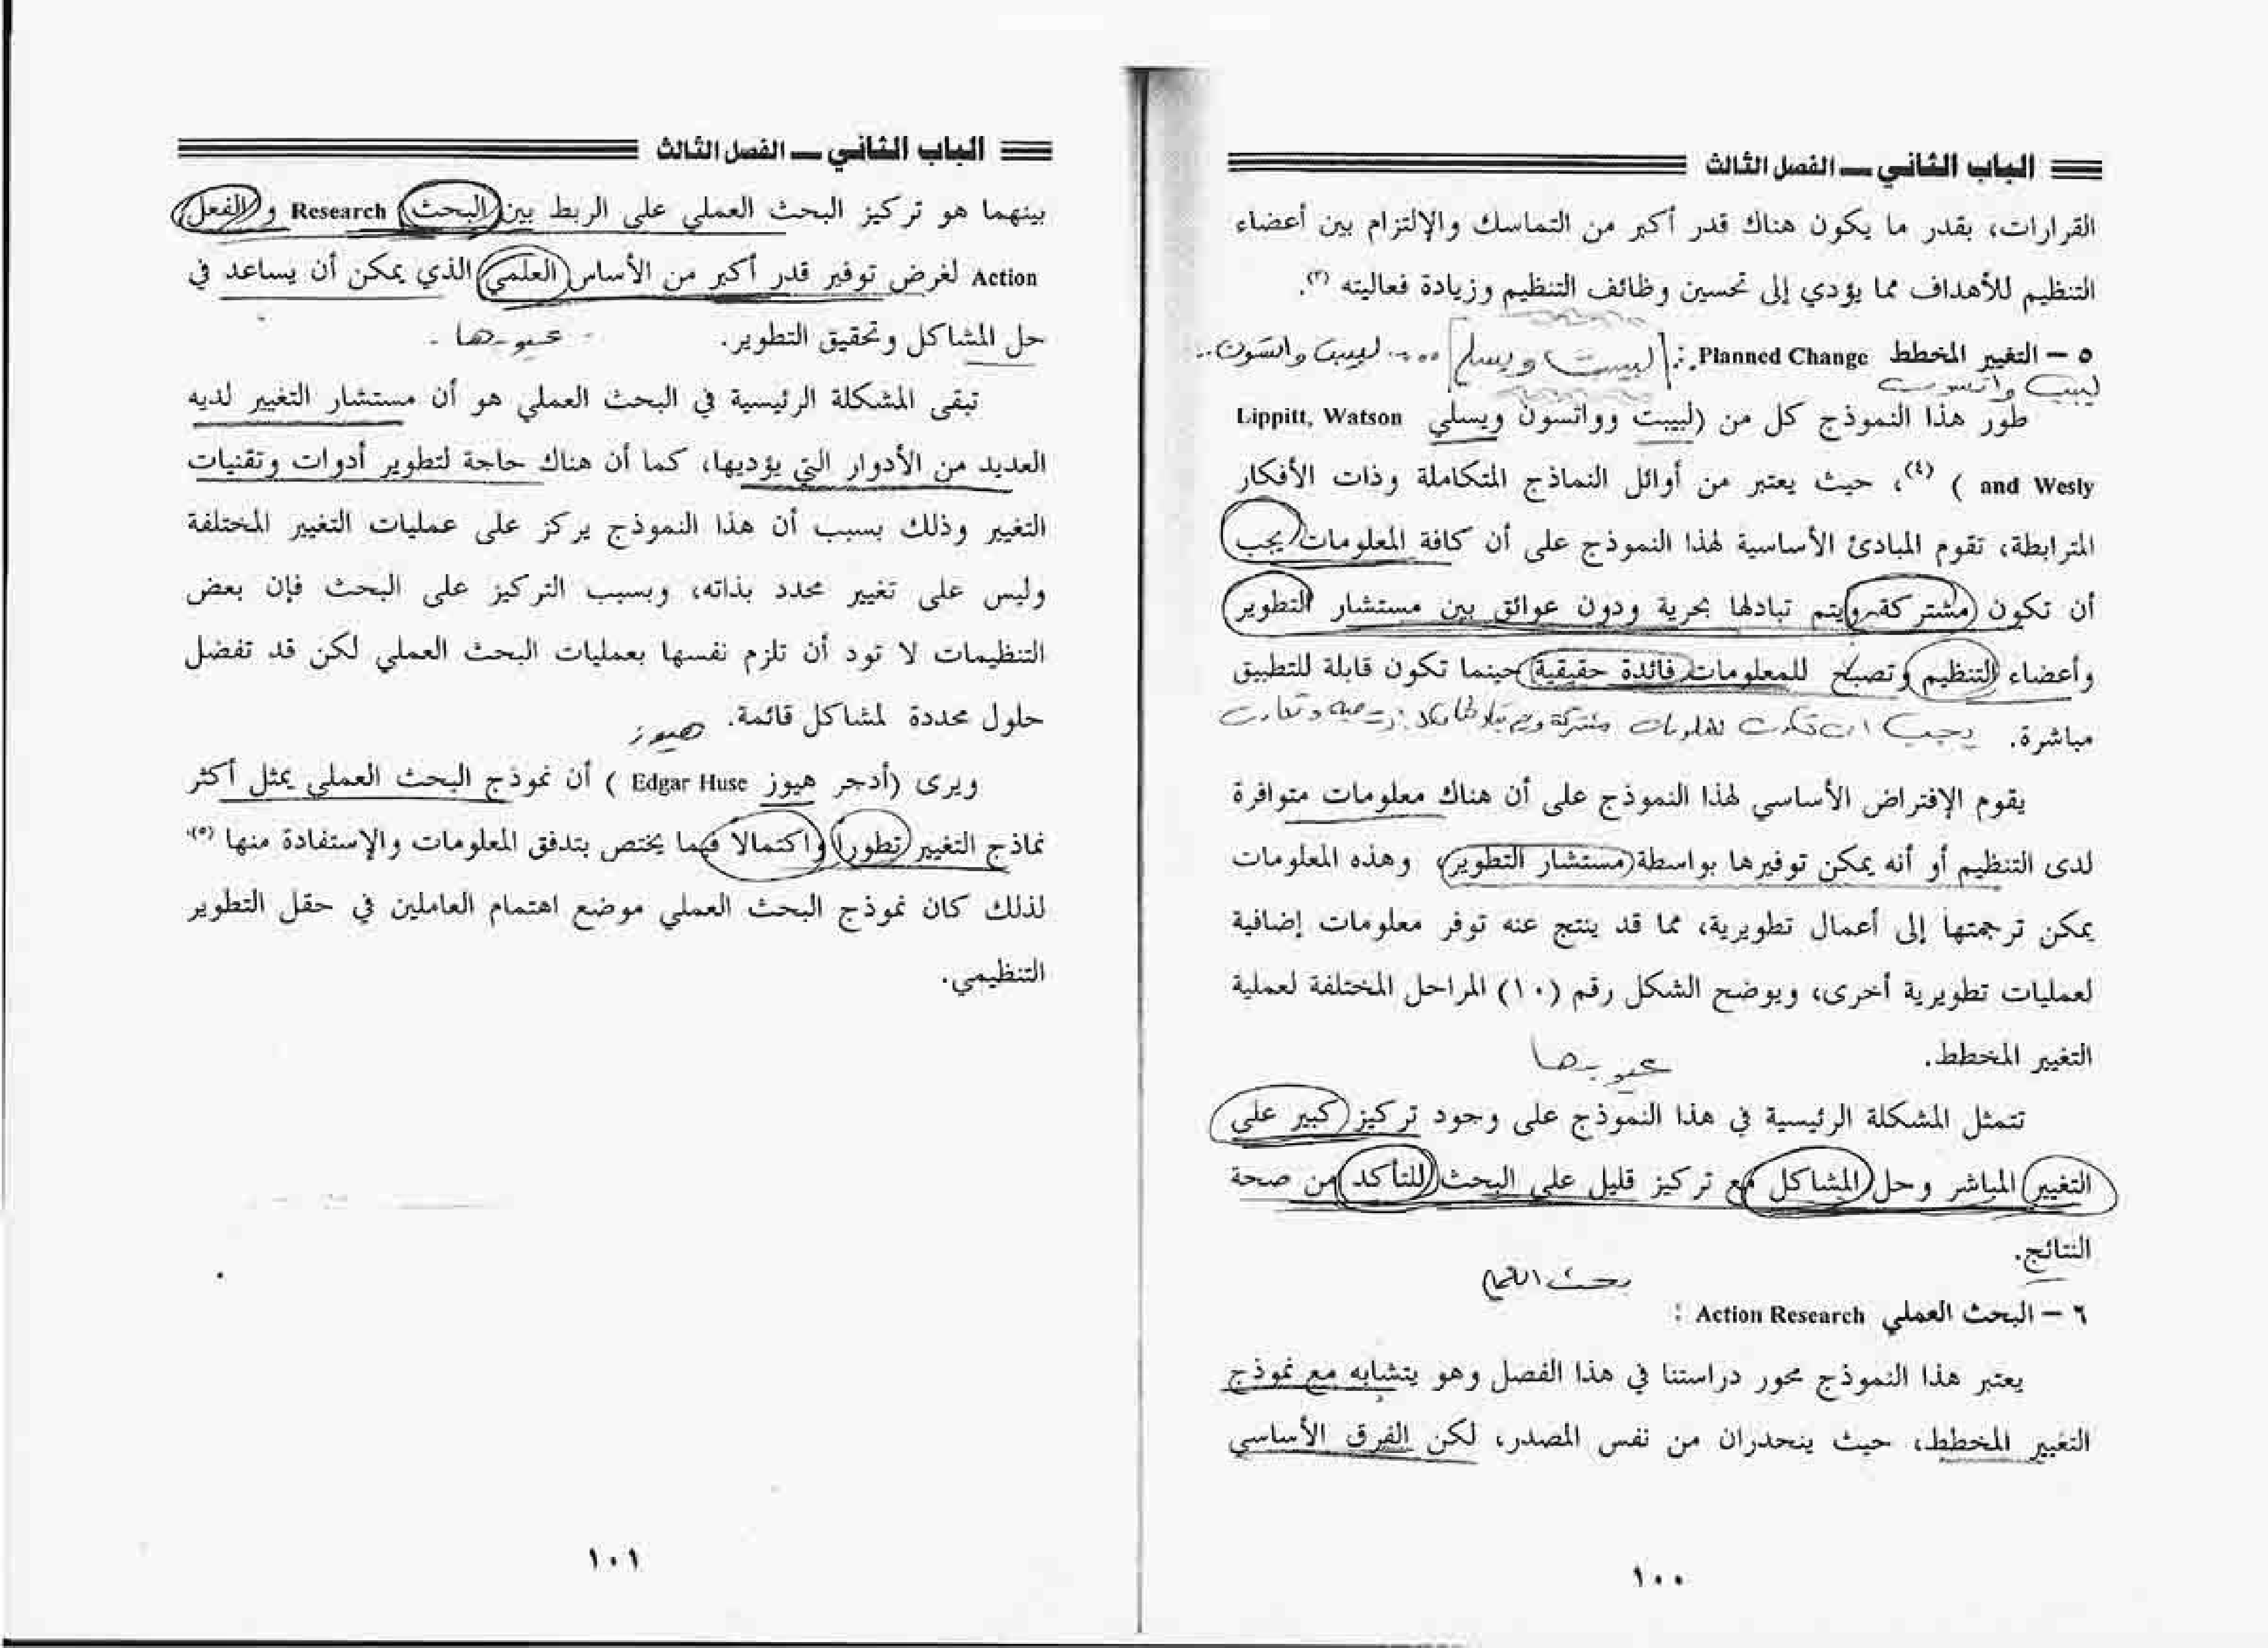 الباب الثاني ـــ الفصل الثالث
القرارات، بقدر ما يكون هناك قدر أكبر من التماسك والإلتزام بين أعضاء
التنظيم للأهداف مما يؤدي إلى تحسين وظائف التنظيم وزيادة فعاليته (٣).
٥ – التغيير المخطط Planned Change : [لبيت ويسلي] لبيت واتسون
لبيت واتسون
طور هذا النموذج كل من (لبيبت وواتسون ويسلي Lippitt, Watson
and Wesly ) (٤)، حيث يعتبر من أوائل النماذج المتكاملة وذات الأفكار
المترابطة، تقوم المبادئ الأساسية لهذا النموذج على أن كافة المعلومات يجب
أن تكون مشتركة ويتم تبادلها بحرية ودون عوائق بين مستشار التطوير
وأعضاء التنظيم وتصبح للمعلومات فائدة حقيقية حينما تكون قابلة للتطبيق
مباشرة. يجب ان تكون المعلومات مشتركة ويتم تبادلها
يقوم الإفتراض الأساسي لهذا النموذج على أن هناك معلومات متوافرة
لدى التنظيم أو أنه يمكن توفيرها بواسطة مستشار التطوير، وهذه المعلومات
يمكن ترجمتها إلى أعمال تطويرية، مما قد ينتج عنه توفر معلومات إضافية
لعمليات تطويرية أخرى، ويوضح الشكل رقم (١٠) المراحل المختلفة لعملية
التغيير المخطط.
عيوبها
تتمثل المشكلة الرئيسية في هذا النموذج على وجود تركيز كبير على
التغيير المباشر وحل المشاكل مع تركيز قليل على البحث للتأكد من صحة
النتائج.
٦ – البحث العملي Action Research :
يعتبر هذا النموذج محور دراستنا في هذا الفصل وهو يتشابه مع نموذج
التغيير المخطط، حيث ينحدران من نفس المصدر، لكن الفرق الأساسي
١٠٠
الباب الثاني ـــ الفصل الثالث
بينهما هو تركيز البحث العملي على الربط بين البحث Research و الفعل
Action لغرض توفير قدر أكبر من الأساس العلمي الذي يمكن أن يساعد في
حل المشاكل وتحقيق التطوير. - عيوبها -
تبقى المشكلة الرئيسية في البحث العملي هو أن مستشار التغيير لديه
العديد من الأدوار التي يؤديها، كما أن هناك حاجة لتطوير أدوات وتقنيات
التغيير وذلك بسبب أن هذا النموذج يركز على عمليات التغيير المختلفة
وليس على تغيير محدد بذاته، وبسبب التركيز على البحث فإن بعض
التنظيمات لا تود أن تلزم نفسها بعمليات البحث العملي لكن قد تفضل
حلول محددة لمشاكل قائمة. هيوز
ويرى (أدجر هيوز Edgar Huse ) أن نموذج البحث العملي يمثل أكثر
نماذج التغيير تطورا واكتمالا فيما يختص بتدفق المعلومات والإستفادة منها (٥).
لذلك كان نموذج البحث العملي موضع اهتمام العاملين في حقل التطوير
التنظيمي.
١٠١